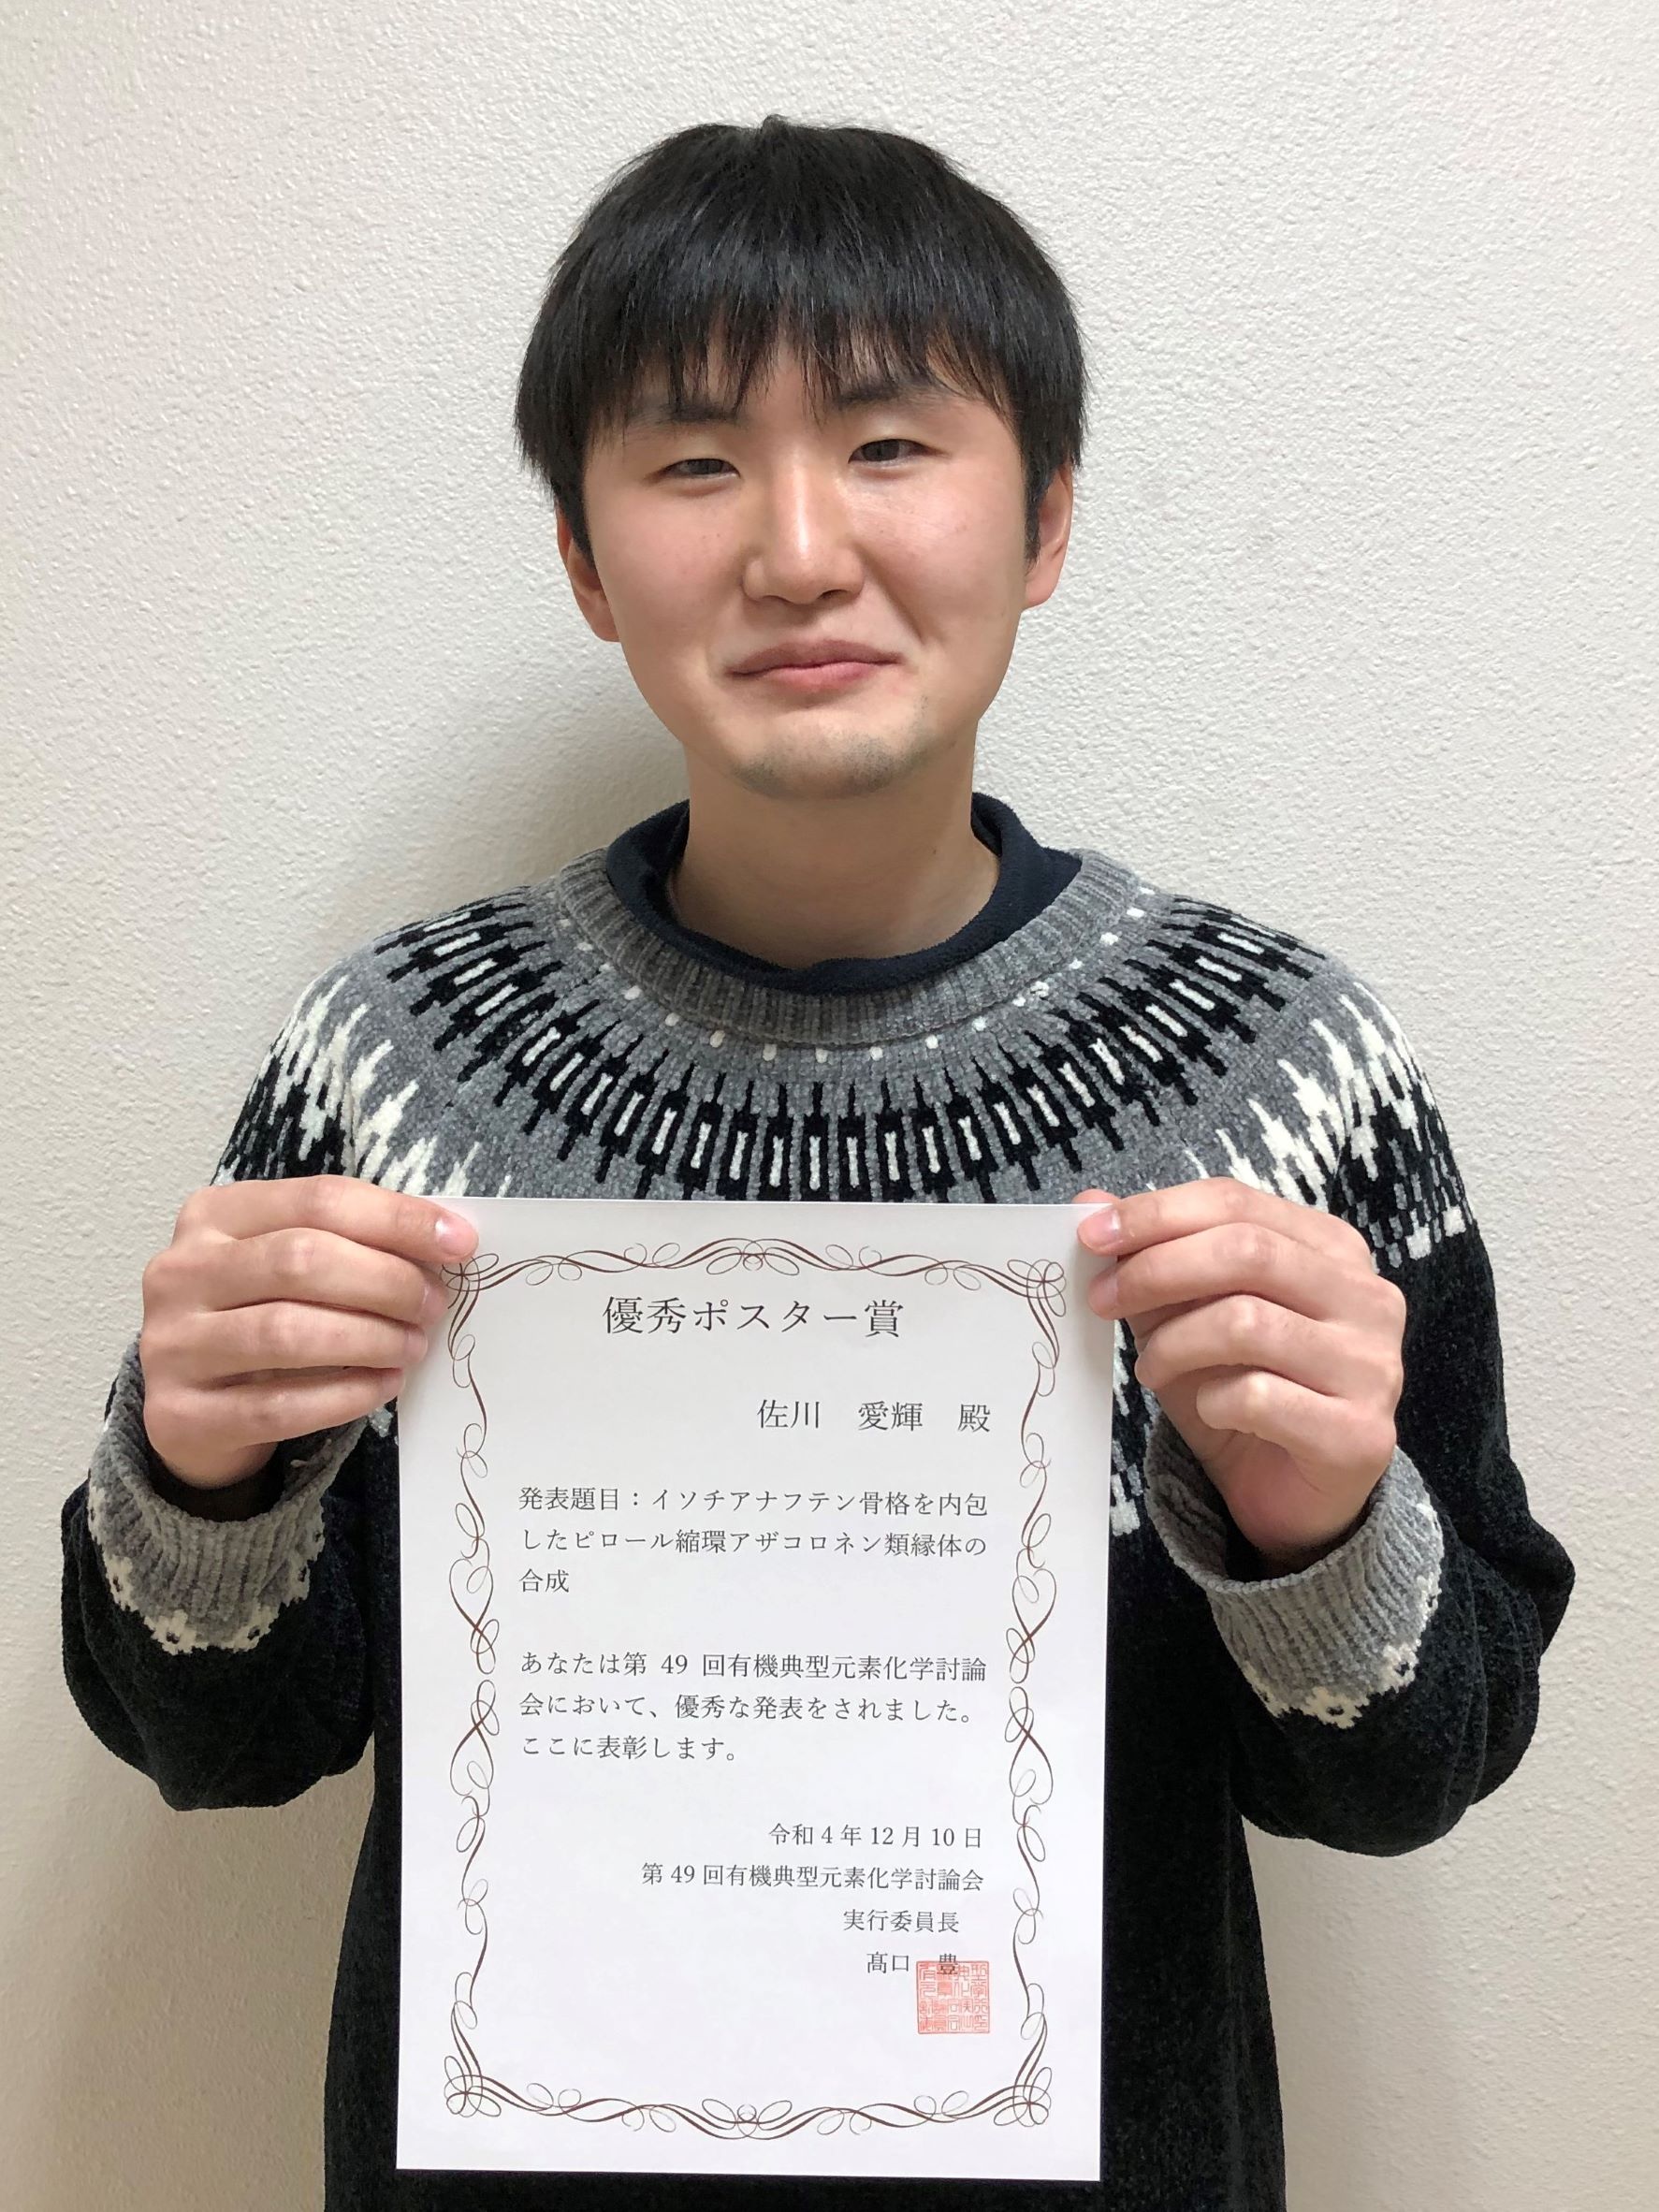 優秀ポスター賞
佐川 愛輝 殿
発表題目：イソチアナフテン骨格を内包
したピロール縮環アザコロネン類縁体の
合成
あなたは第 49 回有機典型元素化学討論
会において、優秀な発表をされました。
ここに表彰します。
令和 4 年 12 月 10 日
第 49 回有機典型元素化学討論会
実行委員長
髙口 豊